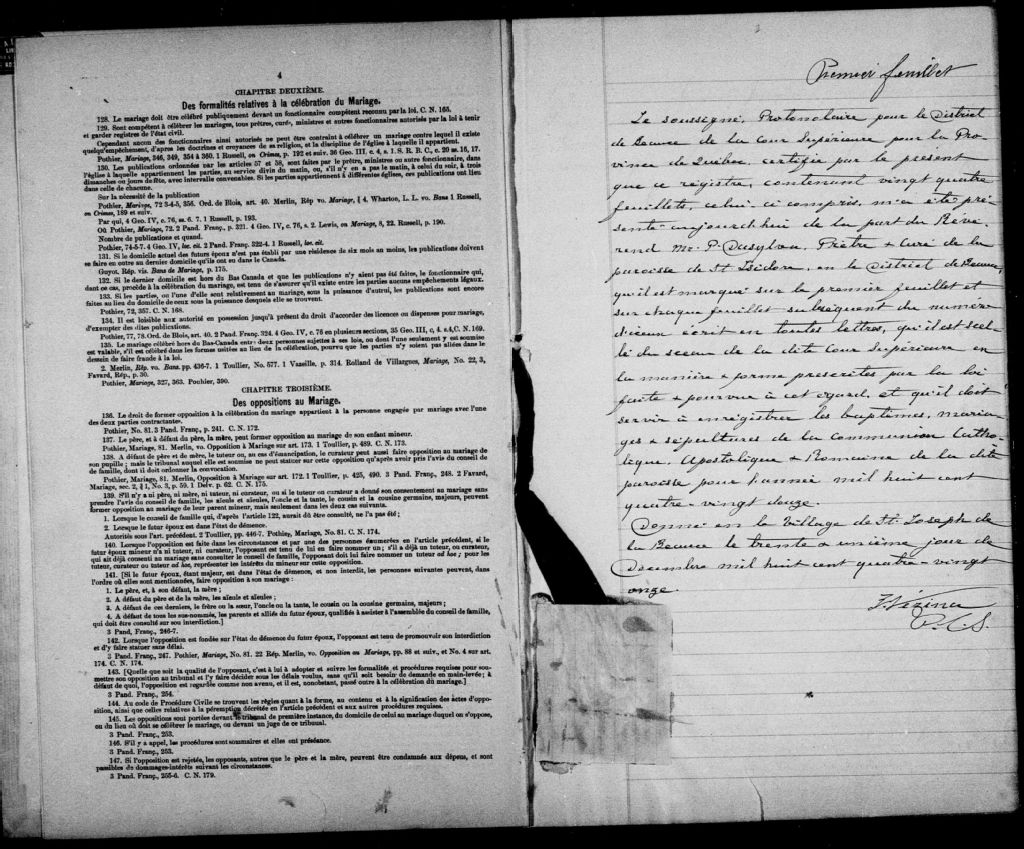 4
CHAPITRE DEUXIÈME.
Des formalités relatives à la célébration du Mariage.
128. Le mariage doit être célébré publiquement devant un fonctionnaire compétent reconnu par la loi. C. N. 165.
129. Sont compétent à célébrer les mariages, tous prêtres, curés, ministres et autres fonctionnaires autorisés par la loi à tenir
et garder registres de l'état civil.
Cependant aucun des fonctionnaires ainsi autorisés ne peut être contraint à célébrer un mariage contre lequel il existe
quelqu'empêchement, d'après les doctrines et croyances de sa religion, et la discipline de l'église à laquelle il appartient.
Pothier, Mariage, 346, 349, 354 à 360. 1 Russell, on Crimes, p. 192 et suiv. 36 Geo. III. c. 4, s. 1. S. R. B. C., c. 20 ss. 16, 17.
130. Les publications ordonnées par les articles 57 et 58, sont faites par le prêtre, ministres ou autre fonctionnaire, dans
l'église à laquelle appartiennent les parties, au service divin du matin, ou, s'il n'y en a pas le matin, à celui du soir, à trois
dimanches ou jours de fête, avec intervalle convenables. Si les parties appartiennent à différentes églises, ces publications ont lieu
dans celle de chacune.
Sur la nécessité de la publication
Pothier, Mariage, 72 3-4-5, 356. Ord. de Blois, art. 40. Merlin, Rép vo. Mariage, § 4. Wharton, L. L. vo. Bans 1 Russell,
on Crimes, 189 et suiv.
Par qui, 4 Geo. IV, c. 76, ss. 6. 7. 1 Russell, p. 193.
Où Pothier, Mariage, 72. 2 Pand. Franç., p. 321. 4 Geo. IV, c. 76, s. 2. Lewis, on Mariage, 8, 22. Russell, p. 190.
Nombre de publications et quand.
Pothier, 74-5-7. 4 Geo. IV, loc. cit. 2 Pand. Franç. 322-4. 1 Russell, loc. cit.
131. Si le domicile actuel des futurs époux n'est pas établi par une résidence de six mois au moins, les publications doivent
se faire en outre au dernier domicile qu'ils ont eu dans le Canada.
Guyot. Rép. vis. Bans de Mariage, p. 175.
132. Si le dernier domicile est hors du Bas Canada et que les publications n'y aient pas été faites, le fonctionnaire qui,
dans ce cas, procède à la célébration du mariage, est tenu de s'assurer qu'il existe entre les parties aucuns empêchements légaux.
133. Si les parties, ou l'une d'elle sont relativement au mariage, sous la puissance d'autrui, les publications sont encore
faites au lieu du domicile de ceux sous la puissance desquels elle se trouvent.
Pothier, 72, 357. C. N. 168.
134. Il est loisible aux autorité en possession jusqu'à présent du droit d'accorder des licences ou dispenses pour mariage,
d'exempter des dites publications.
Pothier, 77, 78. Ord. de Blois, art. 40. 2 Pand. Franç. 324. 4 Geo. IV, c. 76 en plusieurs sections, 35 Geo. III, c, 4. s.4, C. N. 169.
135. Le mariage célébré hors du Bas-Canada entre deux personnes sujettes à ses lois, ou dont l'une seulement y est soumise
est valable, s'il est célébré dans les formes usitées au lieu de la célébration, pourvu que les parties n'y soient pas allées dans le
dessein de faire fraude à la loi.
2. Merlin, Rép. vo. Bans. pp. 436-7. 1 Toullier, No. 577. 1 Vazeille, p. 314. Rolland de Villargues, Mariage, No. 22, 3,
Favard, Rép., p. 30.
Pothier, Mariage, 327, 363. Pouhier, 390.
CHAPITRE TROISIÈME.
Des oppositions au Mariage.
136. Le droit de former opposition à la célébration du mariage appartient à la personne engagée par mariage avec l'une
des deux parties contractantes.
Pothier, No. 81. 3 Pand. Franç., p. 241. C. N. 172.
137. Le père, et à défaut du père, la mère, peut former opposition au mariage de son enfant mineur.
Pothier, Mariage, 81. Merlin, vo. Opposition à Mariage sur art. 173. 1 Toullier, p. 489. C. N. 173.
138. A défaut de père et de mère, le tuteur ou, au cas d'émancipation, le curateur peut aussi faire opposition au mariage de
son pupille ; mais le tribunal auquel elle est soumise ne peut statuer sur cette opposition qu'après avoir pris l'avis du conseil de
famille, dont il doit ordonner la convocation.
Pothier, Mariage, 81. Merlin, Opposition à Mariage sur art. 172. 1 Toullier, p. 425, 490. 3 Pand. Franç., 248. 2 Favard,
Mariage, sec. 2, § 1, No. 3, p. 59. 1 Delv. p. 62. C. N. 175.
139. S'il n'y a ni père, ni mère, ni tuteur, ni curateur, ou si le tuteur ou curateur a donné son consentement au mariage sans
prendre l'avis du conseil de famille, les aïeuls et aïeules, l'oncle et la tante, le cousin et la cousine germains, majeurs, peuvent
former opposition au mariage de leur parent mineur, mais seulement dans les deux cas suivants.
1. Lorsque le conseil de famille qui, d'après l'article 122, aurait dû être consulté, ne l'a pas été ;
2. Lorsque le futur époux est dans l'état de démence.
Autorités sous l'art. précédent. 2 Toullier, pp. 446-7. Pothier, Mariage, No. 81. C. N. 174.
140. Lorsque l'opposition est faite dans les circonstances et par une des personnes énumérées en l'article précédent, si le
futur époux mineur n'a ni tuteur, ni curateur, l'opposant est tenu de lui en faire nommer un ; s'il a déjà un tuteur, ou curateur,
qui ait déjà consenti au mariage sans consulter le conseil de famille, l'opposant doit lui faire nommer un tuteur ad hoc ; pour les
tuteur, curateur ou tuteur ad hoc, représenter les intérêts du mineur sur cette opposition.
141. [Si le futur époux, étant majeur, est dans l'état de démence, et non interdit, les personnes suivantes peuvent, dans
l'ordre où elles sont mentionnées, faire opposition à son mariage :
1. Le père, et, à son défaut, la mère ;
2. A défaut du père et de la mère, les aïeuls et aïeules ;
3. A défaut de ces derniers, le frère ou la sœur, l'oncle ou la tante, le cousin ou la cousine germains, majeurs ;
4. A défaut de tous les sus-nommés, les parents et alliés du futur époux, qualifiés à assister à l'assemblée du conseil de famille,
qui doit être consulté sur son interdiction.]
3 Pand. Franç., 246-7.
142. Lorsque l'opposition est fondée sur l'état de démence du futur époux, l'opposant est tenu de promouvoir son interdiction
et d'y faire statuer sans délai.
3 Pand. Franç., 247. Pothier, Mariage, No. 81. 22 Rép. Merlin, vo. Opposition au Mariage, pp. 88 et suiv., et No. 4 sur art.
174. C. N. 174.
143. [Quelle que soit la qualité de l'opposant, c'est à lui à adopter et suivre les formalités et procédures requises pour sou-
mettre son opposition au tribunal et l'y faire décider sous les délais voulus, sans qu'il soit besoin de demande en main-levée ; à
défaut de quoi, l'opposition est regardée comme non avenu, et il est, nonobstant, passé outre à la célébration du mariage.]
3 Pand. Franç., 254.
144. Au code de Procédure Civile se trouvent les règles quant à la forme, au contenu et à la signification des actes d'oppo-
sition, ainsi que celles relatives à la péremption décrétée en l'article précédent et aux autres procédures requises.
145. Les oppositions sont portées devant le tribunal de première instance, du domicile de celui au mariage duquel on s'oppose,
ou du lieu où doit se célébrer le mariage, ou devant un juge de ce tribunal.
3 Pand. Franç., 253.
146. S'il y a appel, les procédures sont soumaires et elles ont préséance.
3 Pand. Franç., 253.
147. Si l'opposition est rejetée, les opposants, autres que le père et la mère, peuvent être condamnés aux dépens, et sont
passibles de dommages-intérêts suivant les circonstances.
3 Pand. Franç., 255-6. C. N. 179.
Premier feuillet
Le soussigné, Protonotaire pour le District
de Beauce de la Cour Supérieure pour la Pro-
vince de Québec, certifie par le présent
que ce régistre, contenant vingt quatre
feuillets, celui-ci compris, m'a été pré-
senté aujourd'hui de la part du Révé-
rend Mr. P. Dasylva. Prêtre & Curé de la
paroisse de St Isidore, en le District de Beauce,
qu'il est marqué sur la premier feuillet et
sur chaque feuillet subséquent du numéro
d'iceux écrit en toutes lettres, qu'il est scel-
lé du sceau de la dite Cour Supérieure en
la manière & forme prescrites par la loi
faite & pourvue à cet égard, et qu'il doit
servir à enrégistrer les baptêmes, maria-
ges & sépultures de la communion Catho-
lique, Apostolique & Romaine de la dite
paroisse pour l'année mil huit cent
quatre-vingt douze.
Donné en le Village de St. Joseph de
la Beauce le trente & unième jour de
Décembre mil huit cent quatre-vingt
onze.
Vézina
P. C. S.